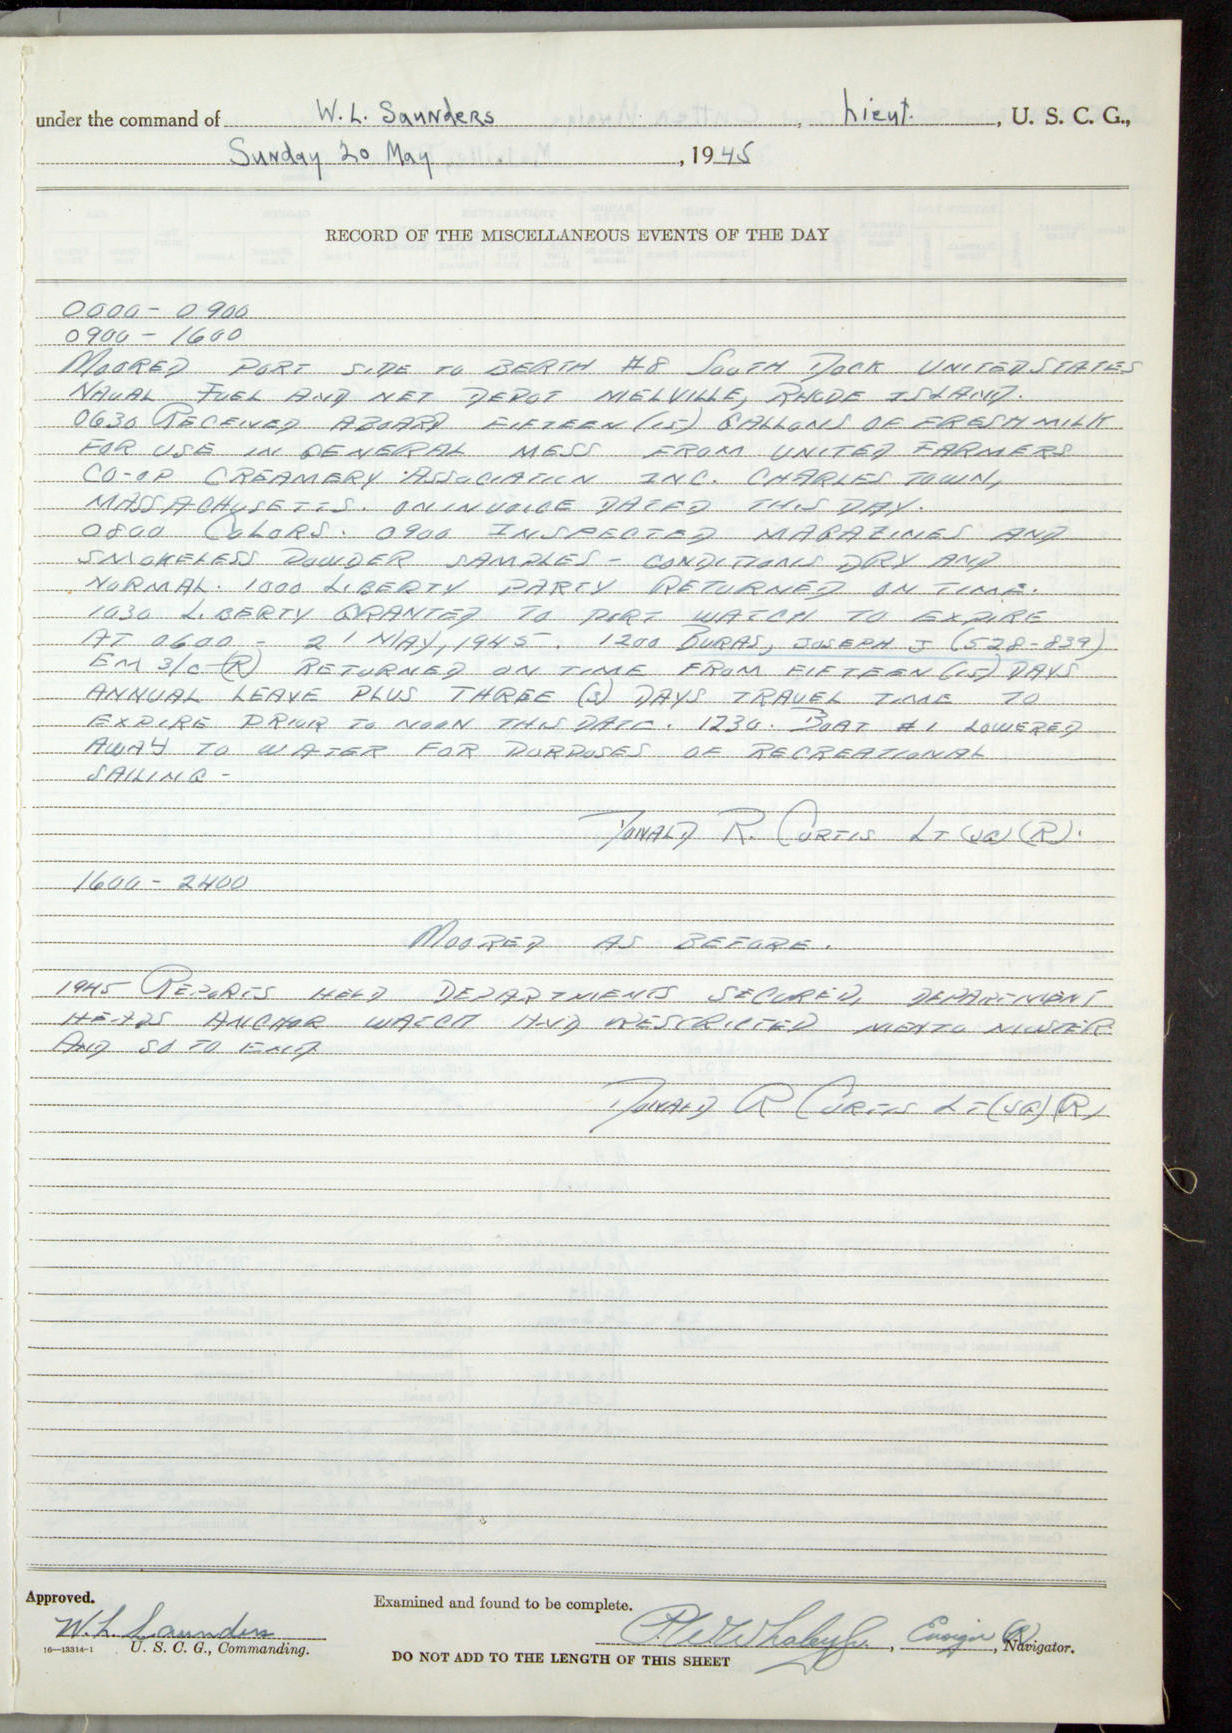 under the command of W. L. Saunders, Lieut., U. S. C. G.,
Sunday 20 May, 1945
RECORD OF THE MISCELLANEOUS EVENTS OF THE DAY
0000 - 0900
0900 - 1600
MOORED PORT SIDE TO BERTH #8 SOUTH DOCK UNITED STATES
NAVAL FUEL AND NET DEPOT MELVILLE, RHODE ISLAND.
0630 RECEIVED ABOARD FIFTEEN (15) GALLONS OF FRESH MILK
FOR USE IN GENERAL MESS FROM UNITED FARMERS
CO-OP CREAMERY ASSOCIATION INC. CHARLES TOWN,
MASSACHUSETTS. ON INVOICE DATED THIS DAY.
0800 COLORS. 0900 INSPECTED MAGAZINES AND
SMOKELESS POWDER SAMPLES - CONDITIONS DRY AND
NORMAL. 1000 LIBERTY PARTY RETURNED ON TIME.
1030 LIBERTY GRANTED TO PORT WATCH TO EXPIRE
AT 0600 - 21 MAY, 1945. 1200 BURAS, JOSEPH J (528-839)
EM 3/C (R) RETURNED ON TIME FROM FIFTEEN (15) DAYS
ANNUAL LEAVE PLUS THREE (3) DAYS TRAVEL TIME TO
EXPIRE PRIOR TO NOON THIS DATE. 1230. BOAT #1 LOWERED
AWAY TO WATER FOR PURPOSES OF RECREATIONAL
SAILING -
DONALD R. CURTIS LT (JG) (R).
1600 - 2400
MOORED AS BEFORE.
1945 REPORTS HELD DEPARTMENTS SECURED, DEPARTMENT
HEADS ANCHOR WATCH AND RESTRICTED MEN TO MUSTER
AND SO TO END
DONALD R CURTIS LT (JG) (R)
Approved.
W. L. Saunders
16—13314-1 U. S. C. G., Commanding.
Examined and found to be complete.
Whaley Jr., Ensign (R), Navigator.
DO NOT ADD TO THE LENGTH OF THIS SHEET